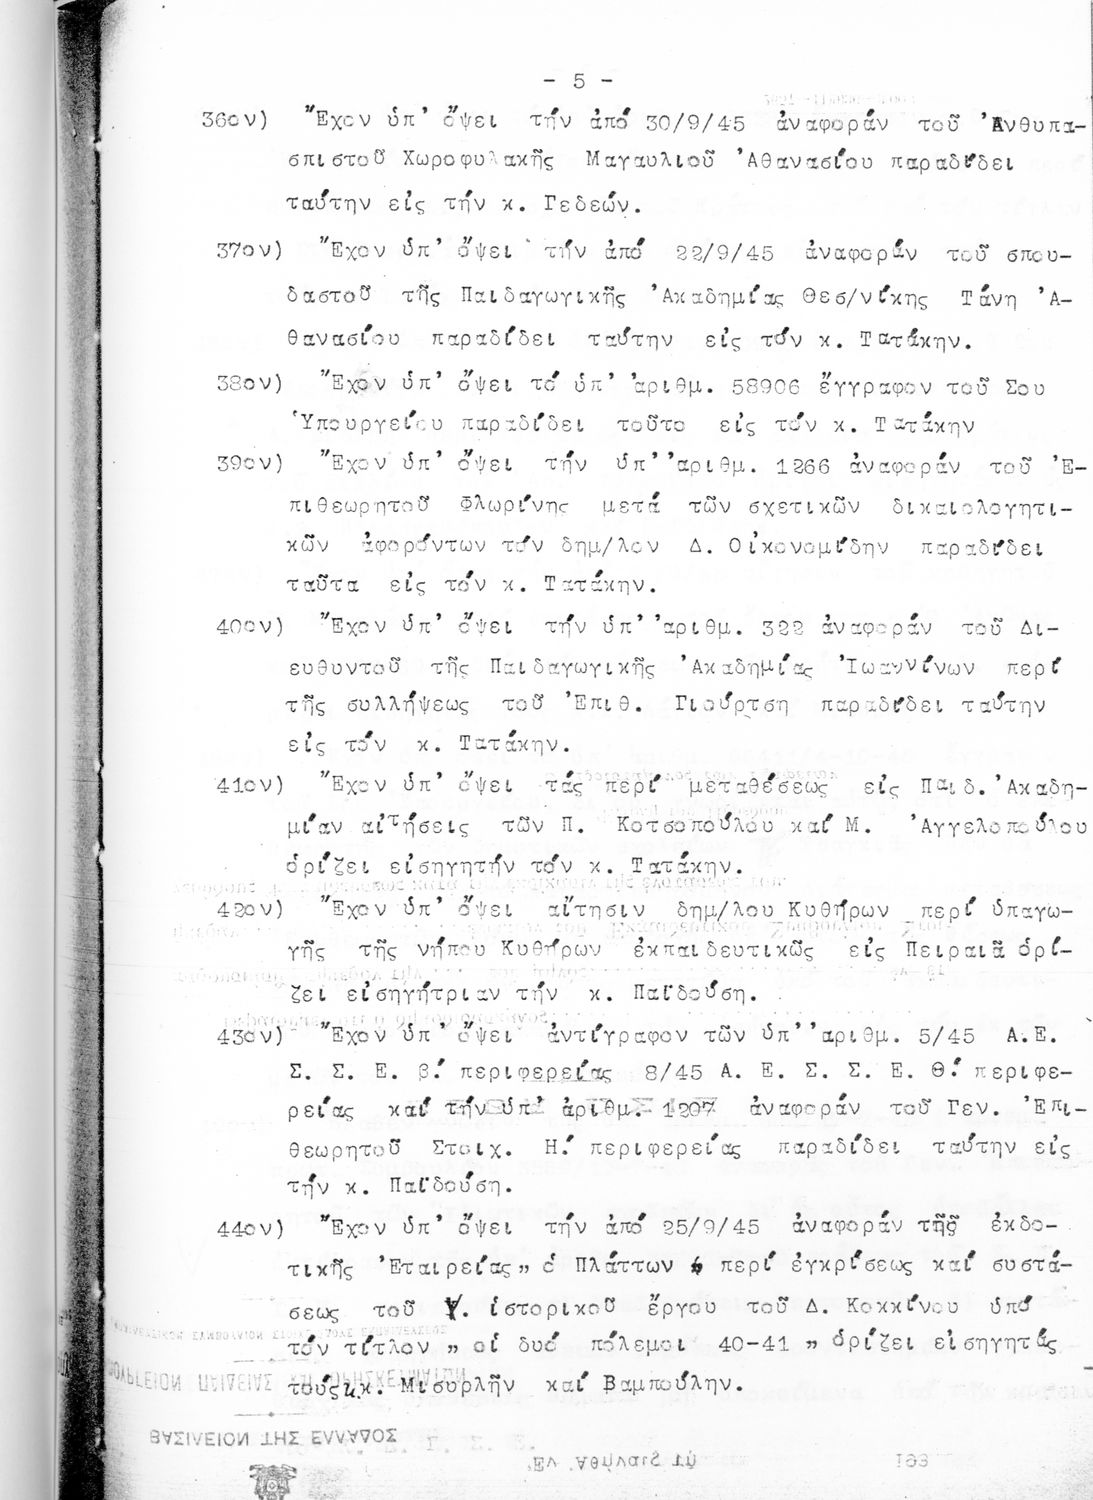 - 5 -
36ον) Ἔχον ὑπ' ὄψει τήν ἀπό 30/9/45 ἀναφοράν τοῦ Ἀνθυπα-
σπιστοῦ Χωροφυλακῆς Μαγαυλιοῦ Ἀθανασίου παραδίδει
ταύτην εἰς τήν κ. Γεδεών.
37ον) Ἔχον ὑπ' ὄψει τήν ἀπό 22/9/45 ἀναφοράν τοῦ σπου-
δαστοῦ τῆς Παιδαγωγικῆς Ἀκαδημίας Θεσ/νίκης Τάνη Ἀ-
θανασίου παραδίδει ταύτην εἰς τόν κ. Τατάκην.
38ον) Ἔχον ὑπ' ὄψει τό ὑπ' ἀριθμ. 58906 ἔγγραφον τοῦ Σου
Ὑπουργείου παραδίδει τοῦτο εἰς τόν κ. Τατάκην
39ον) Ἔχον ὑπ' ὄψει τήν ὑπ' ἀριθμ. 1266 ἀναφοράν τοῦ Ἐ-
πιθεωρητοῦ Φλωρίνης μετά τῶν σχετικῶν δικαιολογητι-
κῶν ἀφορόντων τόν δημ/λον Δ. Οἰκονομίδην παραδίδει
ταῦτα εἰς τόν κ. Τατάκην.
40ον) Ἔχον ὑπ' ὄψει τήν ὑπ' ἀριθμ. 322 ἀναφοράν τοῦ Δι-
ευθυντοῦ τῆς Παιδαγωγικῆς Ἀκαδημίας Ἰωαννίνων περί
τῆς συλλήψεως τοῦ Ἐπιθ. Γιούρτση παραδίδει ταύτην
εἰς τόν κ. Τατάκην.
41ον) Ἔχον ὑπ' ὄψει τάς περί μεταθέσεως εἰς Παιδ. Ἀκαδη-
μίαν αἰτήσεις τῶν Π. Κοτσοπούλου καί Μ. Ἀγγελοπούλου
ὁρίζει εἰσηγητήν τόν κ. Τατάκην.
42ον) Ἔχον ὑπ' ὄψει αἴτησιν δημ/λου Κυθήρων περί ὑπαγω-
γῆς τῆς νήσου Κυθήρων ἐκπαιδευτικῶς εἰς Πειραιᾶ ὁρί-
ζει εἰσηγήτριαν τήν κ. Παϊδούση.
43ον) Ἔχον ὑπ' ὄψει ἀντίγραφον τῶν ὑπ' ἀριθμ. 5/45 Α.Ε.
Σ. Σ. Ε. β΄. περιφερείας 8/45 Α. Ε. Σ. Σ. Ε. Θ΄. περιφε-
ρείας καί τήν ὑπ' ἀριθμ. 1207 ἀναφοράν τοῦ Γεν. Ἐπι-
θεωρητοῦ Στοιχ. Η΄. περιφερείας παραδίδει ταύτην εἰς
τήν κ. Παϊδούση.
44ον) Ἔχον ὑπ' ὄψει τήν ἀπό 25/9/45 ἀναφοράν τῆς ἐκδο-
τικῆς Ἑταιρείας „ ὁ Πλάττων „ περί ἐγκρίσεως καί συστά-
σεως τοῦ . ἱστορικοῦ ἔργου τοῦ Δ. Κοκκίνου ὑπό
τόν τίτλον „ οἱ δυό πόλεμοι 40-41 „ ὁρίζει εἰσηγητάς
τούς κ.κ. Μισυρλῆν καί Βαμπούλην.
ΒΑΣΙΛΕΙΟΝ ΤΗΣ ΕΛΛΑΔΟΣ